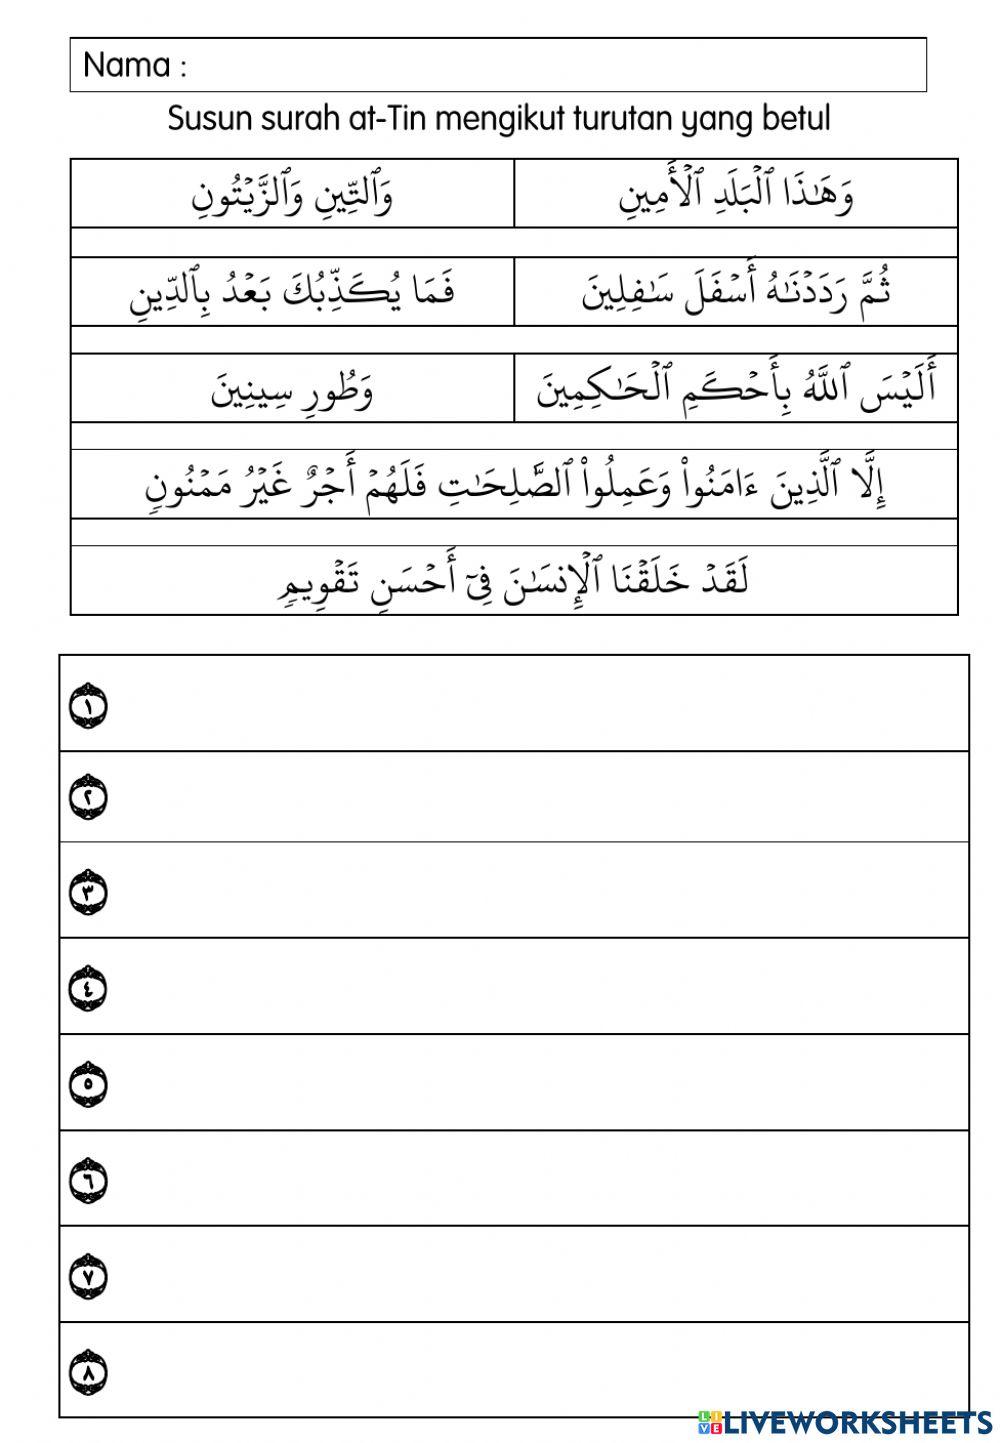 Nama :
Susun surah at-Tin mengikut turutan yang betul
وَهَـٰذَا ٱلْبَلَدِ ٱلْأَمِينِ
وَٱلتِّينِ وَٱلزَّيْتُونِ
ثُمَّ رَدَدْنَـٰهُ أَسْفَلَ سَـٰفِلِينَ
فَمَا يُكَذِّبُكَ بَعْدُ بِٱلدِّينِ
أَلَيْسَ ٱللَّهُ بِأَحْكَمِ ٱلْحَـٰكِمِينَ
وَطُورِ سِينِينَ
إِلَّا ٱلَّذِينَ ءَامَنُوا۟ وَعَمِلُوا۟ ٱلصَّـٰلِحَـٰتِ فَلَهُمْ أَجْرٌ غَيْرُ مَمْنُونٍ
لَقَدْ خَلَقْنَا ٱلْإِنسَـٰنَ فِىٓ أَحْسَنِ تَقْوِيمٍ
١
٢
٣
٤
٥
٦
٧
٨
LIVEWORKSHEETS